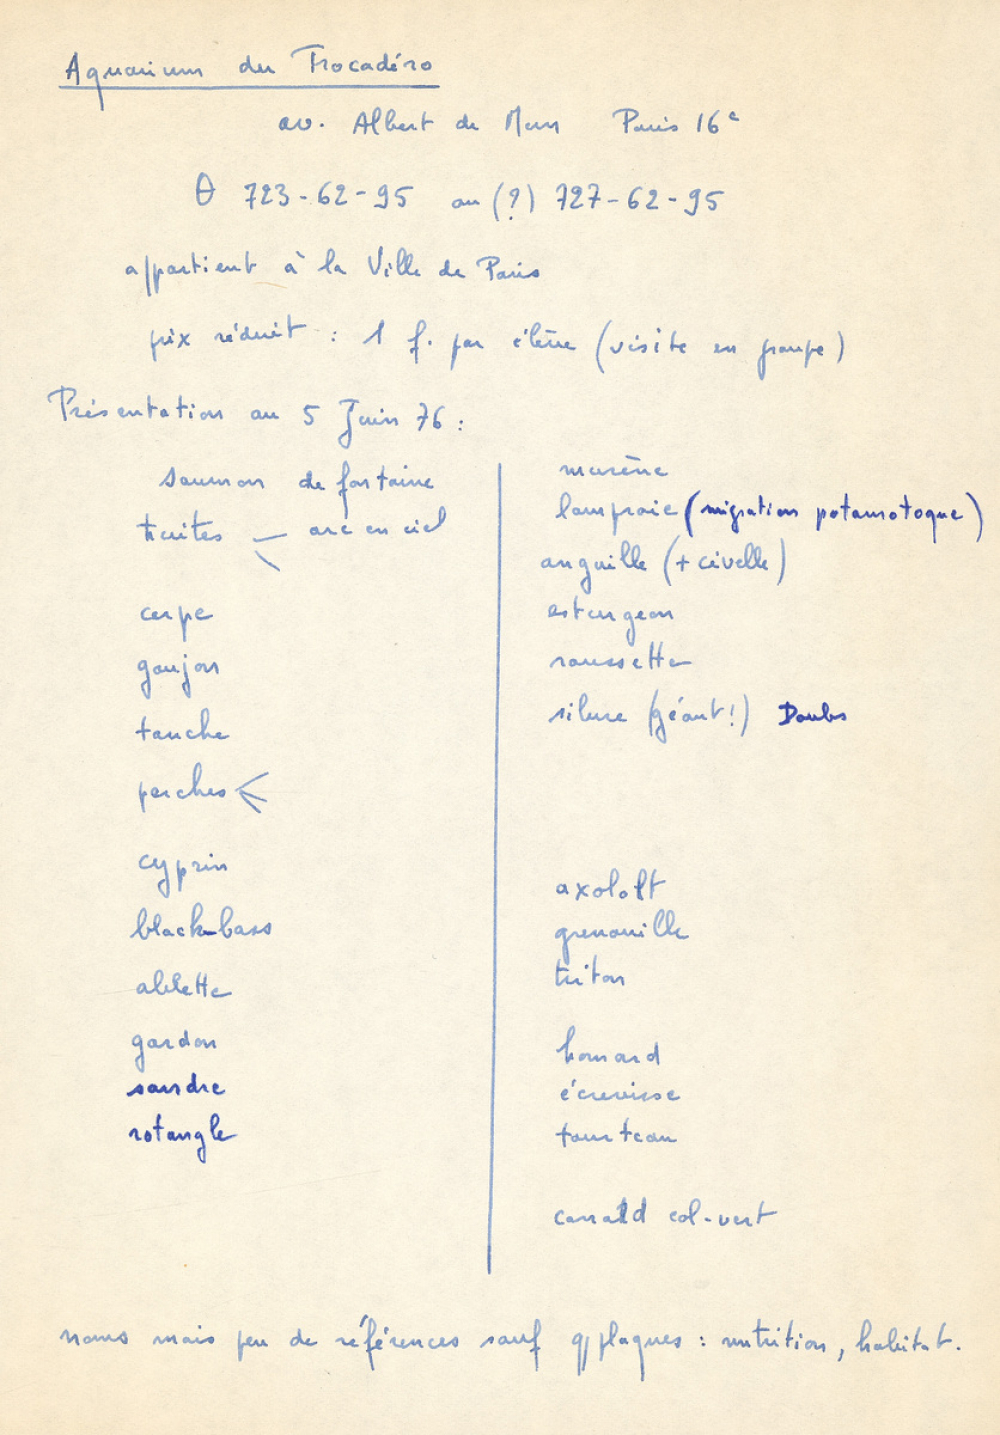 Aquarium du Trocadéro
av. Albert de Mun Paris 16e
θ 723-62-95 ou (?) 727-62-95
appartient à la Ville de Paris
prix réduit : 1 f. par élève (visite en groupe)
Présentation au 5 Juin 76 :
saumon de fontaine
truites — arc en ciel
carpe
goujon
tanche
perches
cyprin
black-bass
ablette
gardon
sandre
rotangle
murène
lamproie (migration potamotoque)
anguille (+ civelle)
esturgeon
roussette
silure (géant!) Doubs
axololt
grenouille
triton
homard
écrevisse
tourteau
canard col-vert
noms mais peu de références sauf qq plaques : nutrition, habitat.